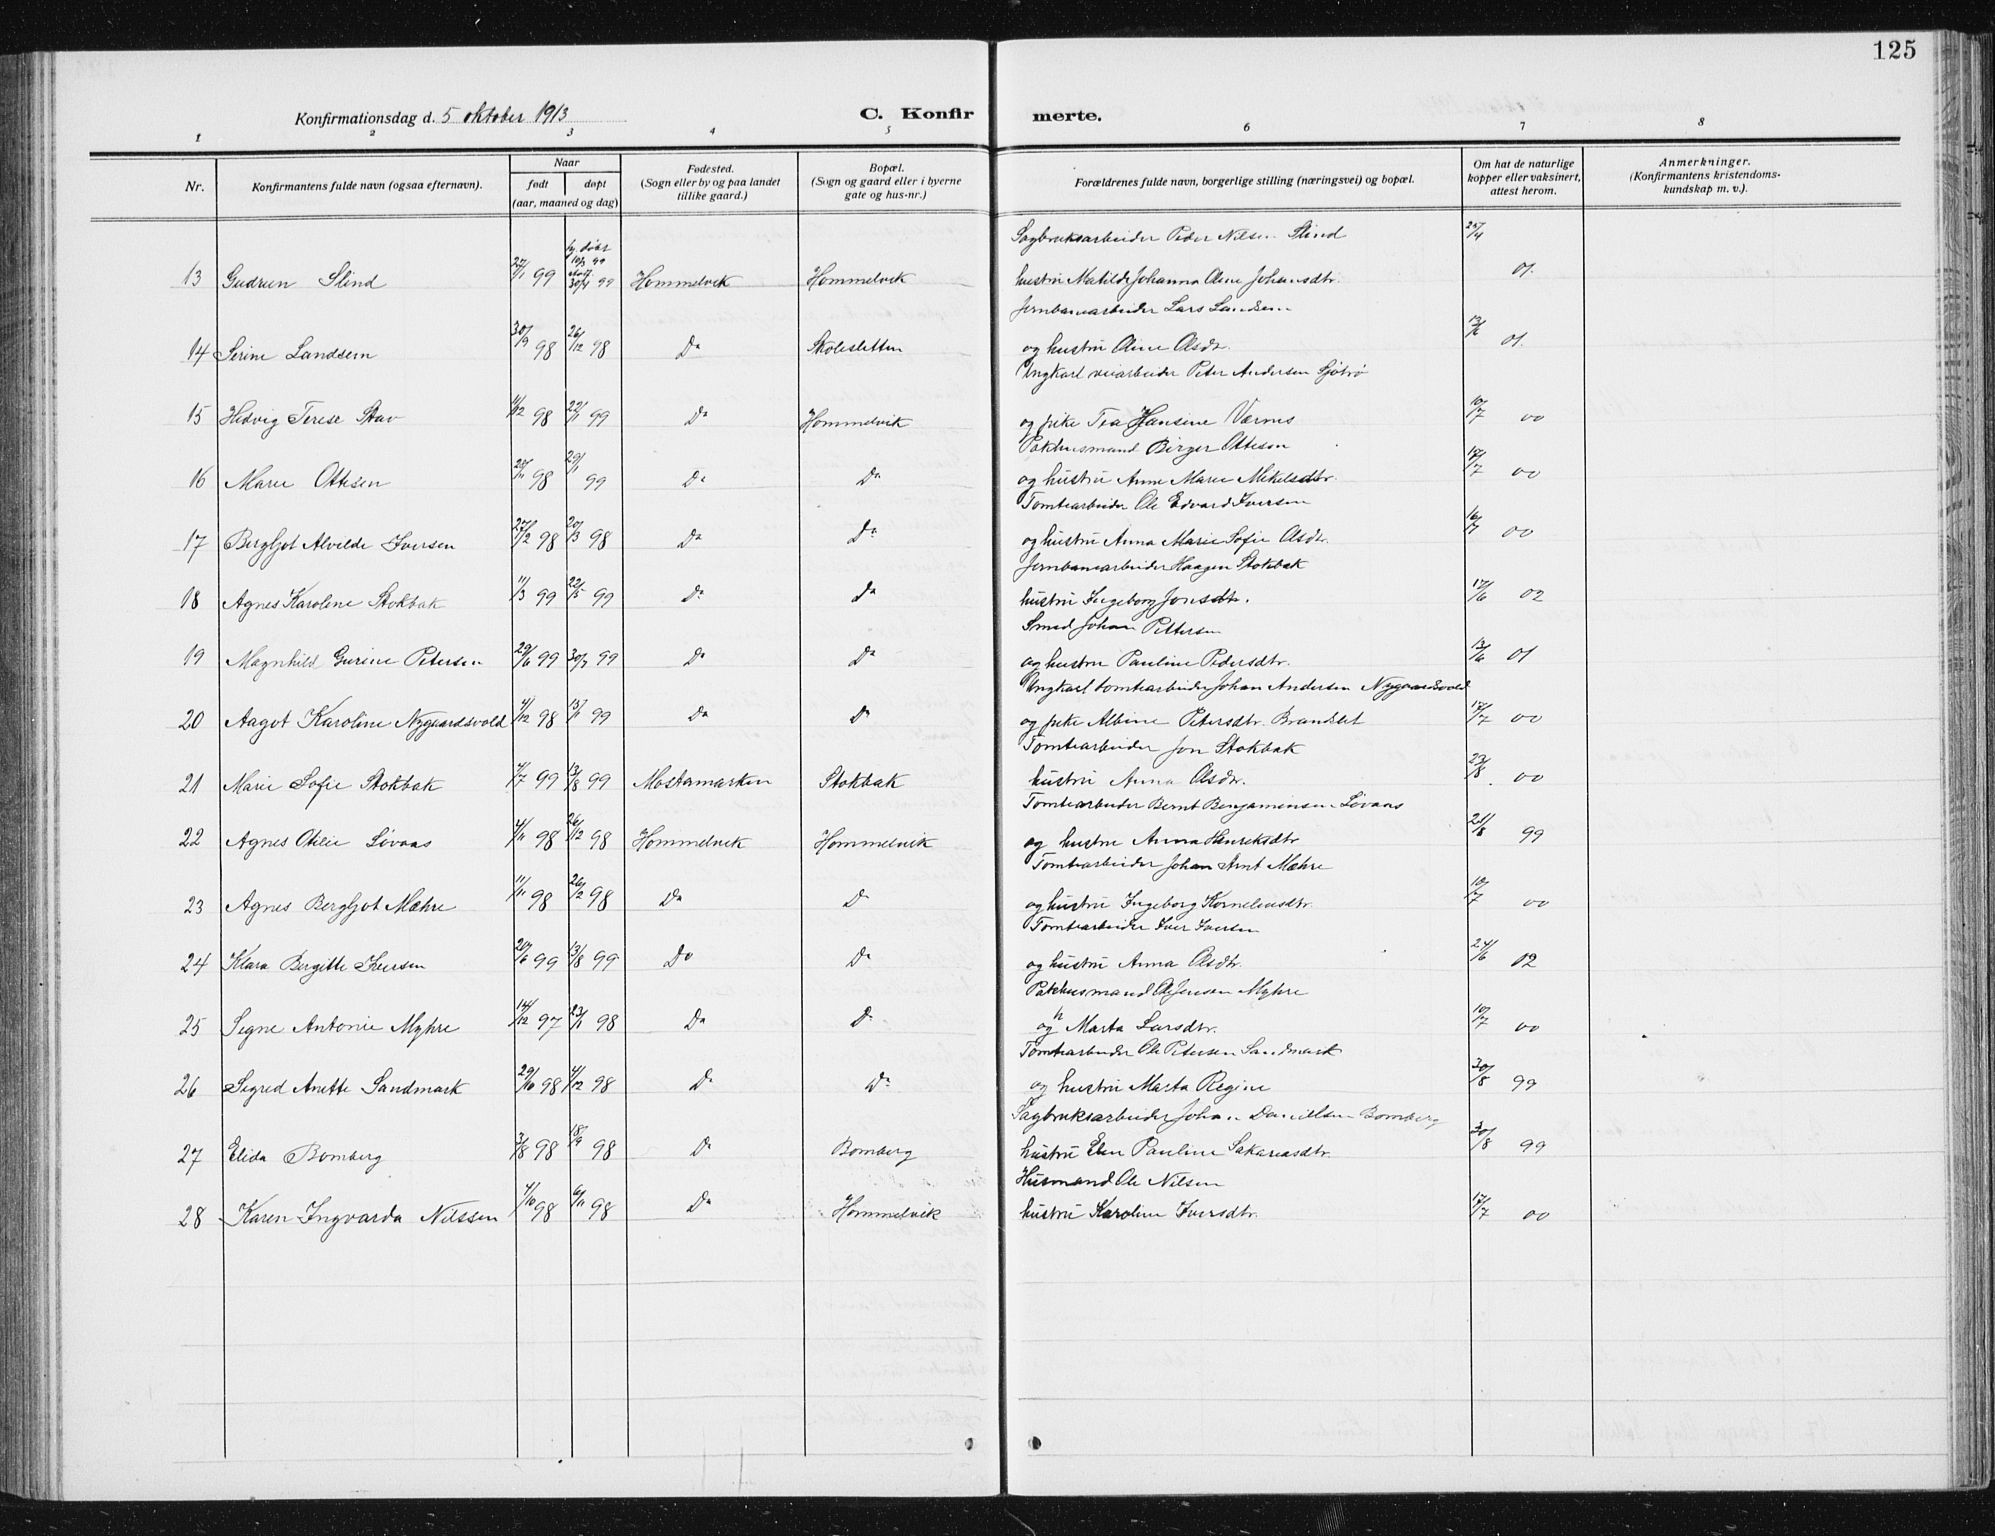 125
Konfirmationsdag d. 5 oktober 1913
C. Konfirmerte.
1 2 3 4 5 6 7 8
Nr.
Konfirmantens fulde navn (ogsaa efternavn).
Naar
født døpt
(aar, maaned og dag)
Fødested.
(Sogn eller by og paa landet
tillike gaard.)
Bopæl.
(Sogn og gaard eller i byerne
gate og hus-nr.)
Forældrenes fulde navn, borgerlige stilling (næringsvei) og bopæl.
Om hat de naturlige
kopper eller vaksinert,
attest herom.
Anmerkninger.
(Konfirmantens kristendoms-
kundskap m. v.).
Sagbruksarbeider Peder Nilsen Slind 25/4
13 Gudrun Slind 27/1 99 hj. døpt 10/3 99 stadf. 30/4 99 Hommelvik Hommelvik hustru Matilde Johanna Oline Johansdtr. 01.
Jernbanearbeider Lars Landsem
14 Serine Landsem 30/9 98 26/12 98 Do Skolesletten og hustru Oline Olsdr. 13/6 01.
Ungkarl veiarbeider Peter Andersen Sjøtrø
15 Hedvig Terese Stav 11/12 98 22/1 99 Do Hommelvik og pike Tea Hansine Værnes 10/7 00
Pakhusmand Birger Ottesen
16 Marie Ottesen 28/11 98 29/1 99 Do Do og hustru Anne Marie Mikelsdtr. 17/7 00
Tomtearbeider Ole Edvard Iversen
17 Bergljot Alvilde Iversen 27/2 98 20/3 98 Do Do og hustru Anna Marie Sofie Olsdr. 16/7 00
Jernbanearbeider Haagen Stokbak
18 Agnes Karoline Stokbak 11/3 99 22/5 99 Do Do hustru Ingeborg Jonsdtr. 17/6 02
Smed Johan Pettersen
19 Magnhild Gurine Petersen 29/6 99 30/7 99 Do Do og hustru Pauline Pedersdtr. 13/6 01
Ungkarl tomtearbeider Johan Andersen Nygaardsvold
20 Aagot Karoline Nygaardsvold 4/12 98 13/1 99 Do Do og pike Albine Petersdtr. Brandslet 17/7 00
Tomtearbeider Jon Stokbak
21 Marie Sofie Stokbak 7/7 99 13/8 99 Mostamarken Stokbak hustru Anna Olsdr. 23/8 00
Tomtearbeider Bernt Benjaminsen Løvaas
22 Agnes Otilie Løvaas 4/11 98 26/12 98 Hommelvik Hommelvik og hustru Anna Henriksdtr 21/8 99
Tomtearbeider Johan Arnt Mæhre
23 Agnes Bergljot Mæhre 11/11 98 26/12 98 Do Do og hustru Ingeborg Korneliusdtr. 10/7 00
Tomtearbeider Iver Iversen
24 Klara Bergitte Iversen 20/6 99 13/8 99 Do Do og hustru Anna Olsdtr. 24/6 02
Pakhusmand Ole Jensen Myhre
25 Signe Antonie Myhre 14/12 97 23/1 98 Do Do og h Marta Larsdtr. 10/7 00
Tomtearbeider Ole Petersen Sandmark
26 Sigrid Anette Sandmark 29/10 98 4/12 98 Do Do og hustru Marta Regine 30/8 99
Sagbruksarbeider Johan Danielsen Bomberg
27 Elida Bomberg 3/8 98 18/9 98 Do Bomberg hustru Elen Pauline Sakariasdtr. 30/8 99
Husmand Ole Nilsen
28 Karen Ingvarda Nilssen 4/10 98 6/11 98 Do Hommelvik hustru Karoline Iversdtr. 17/7 00